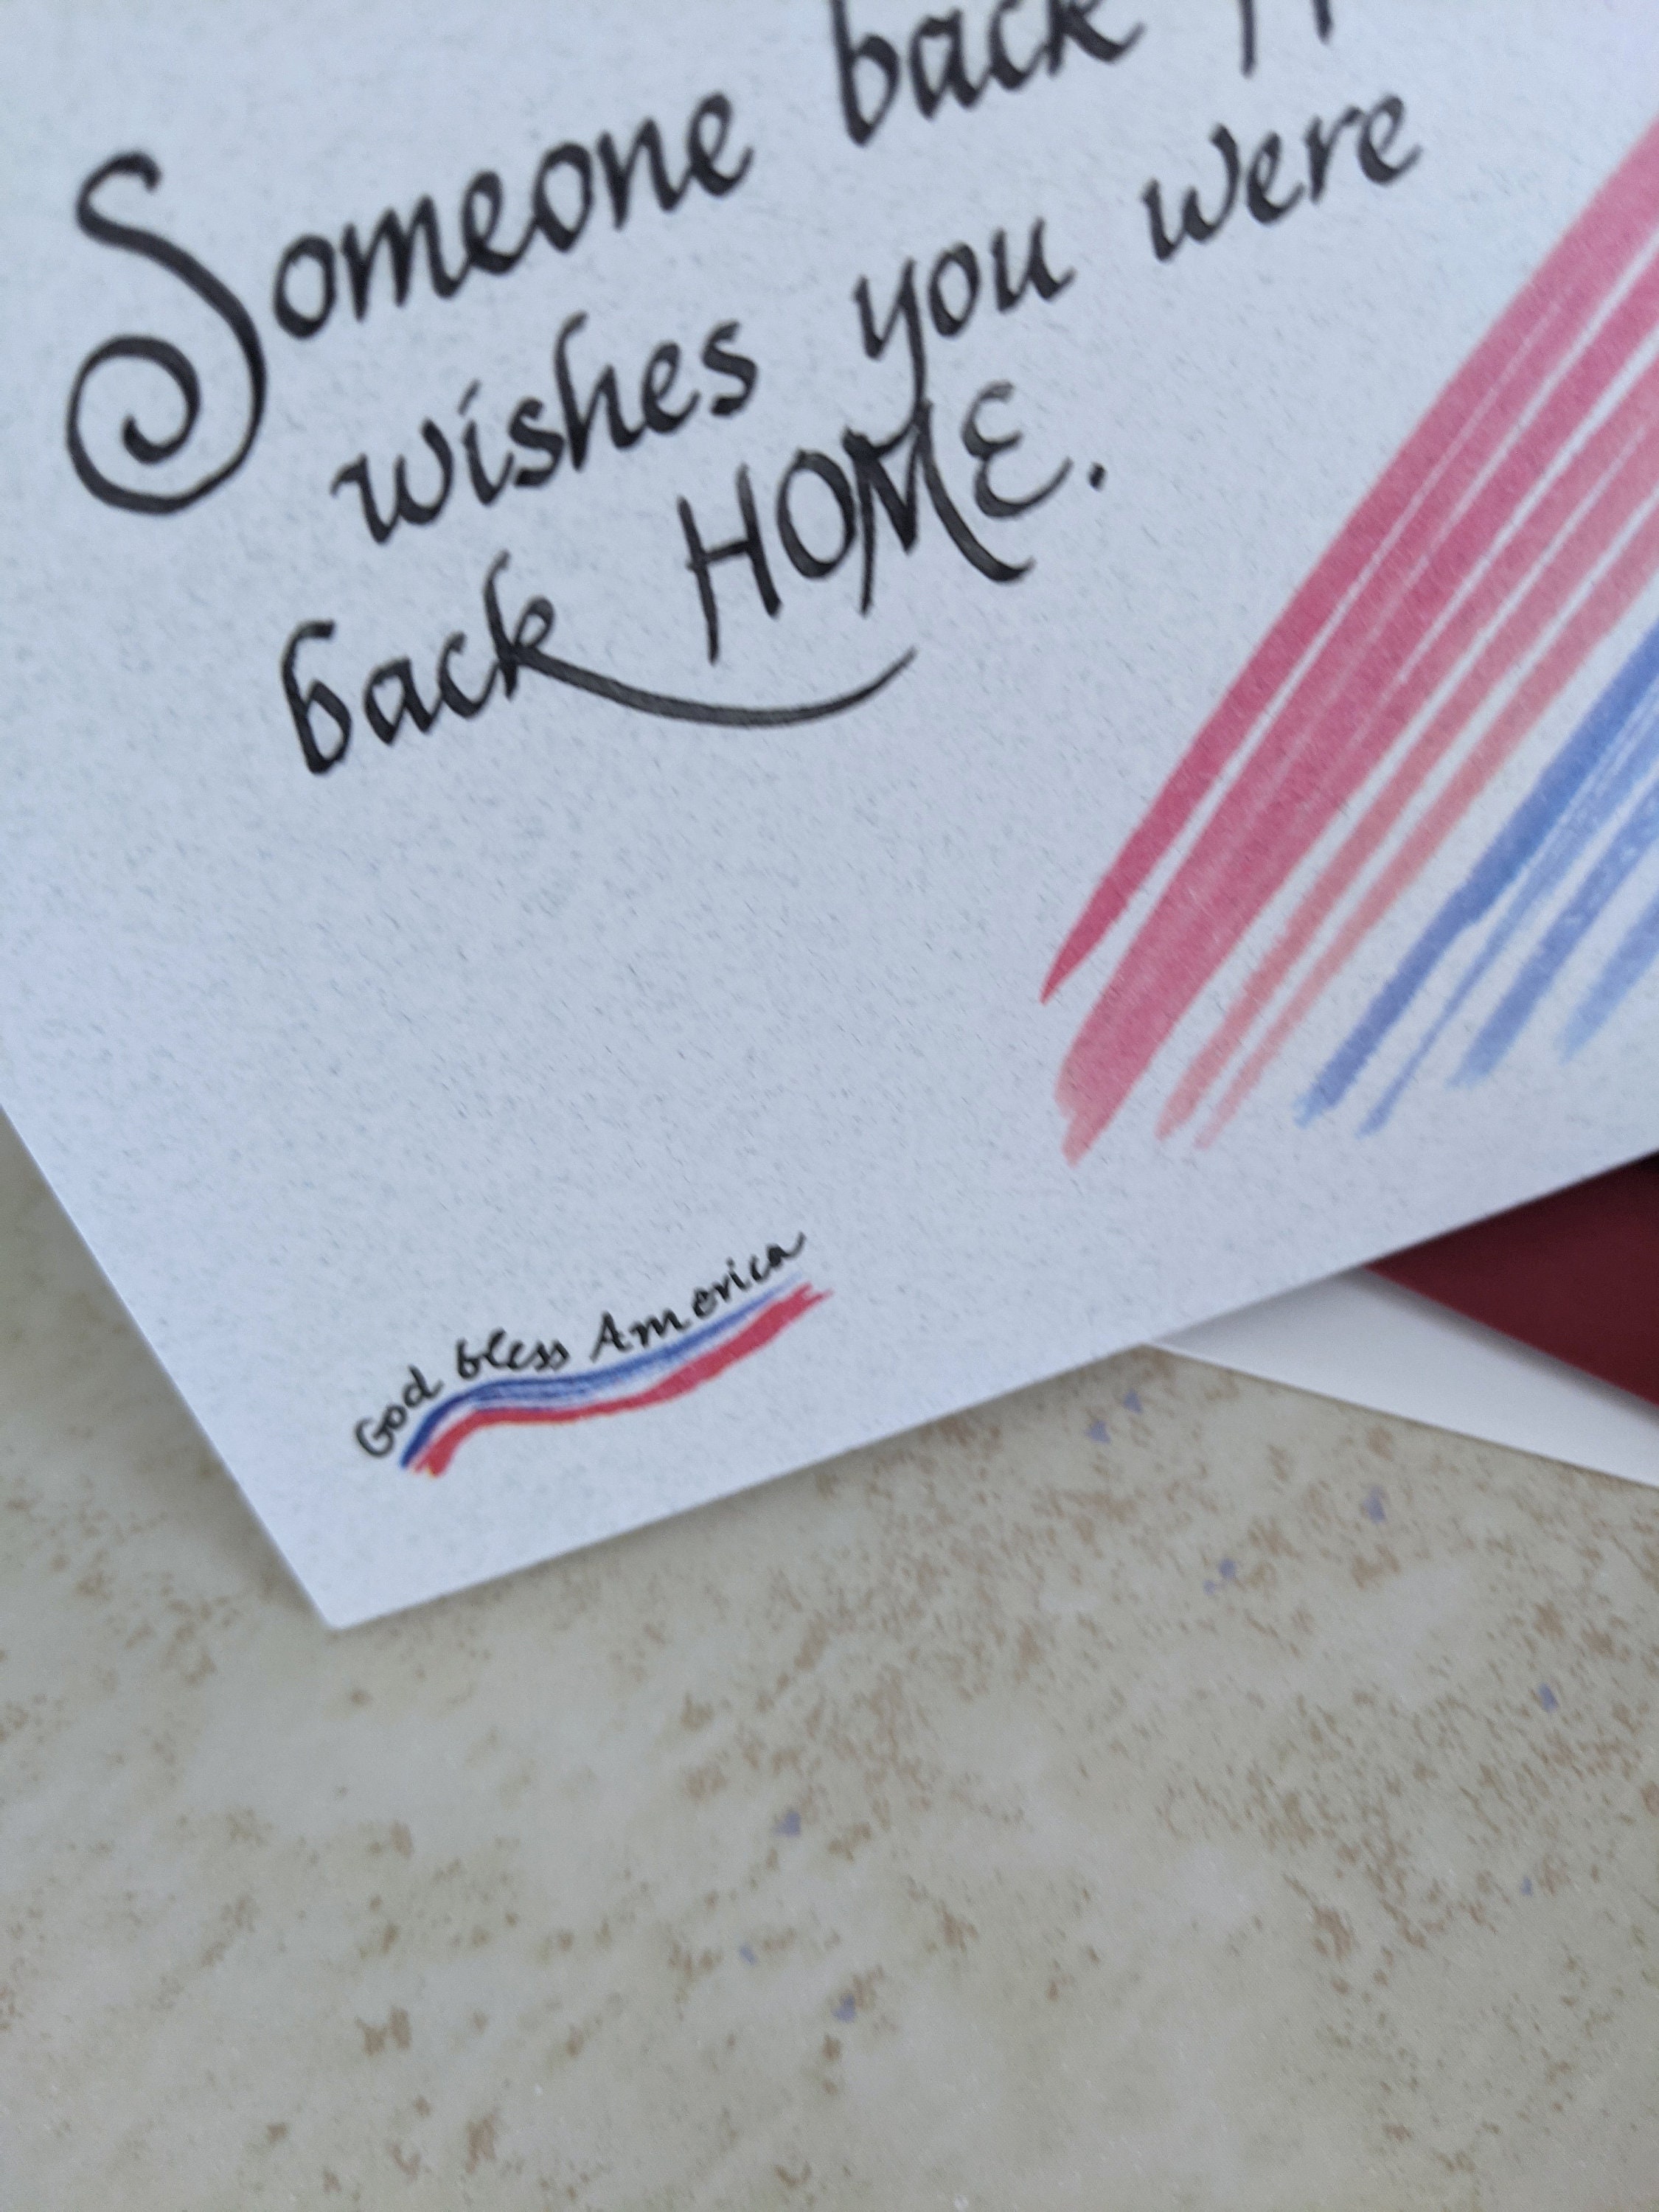 Someone back
wishes you were
back HOME.
God bless America